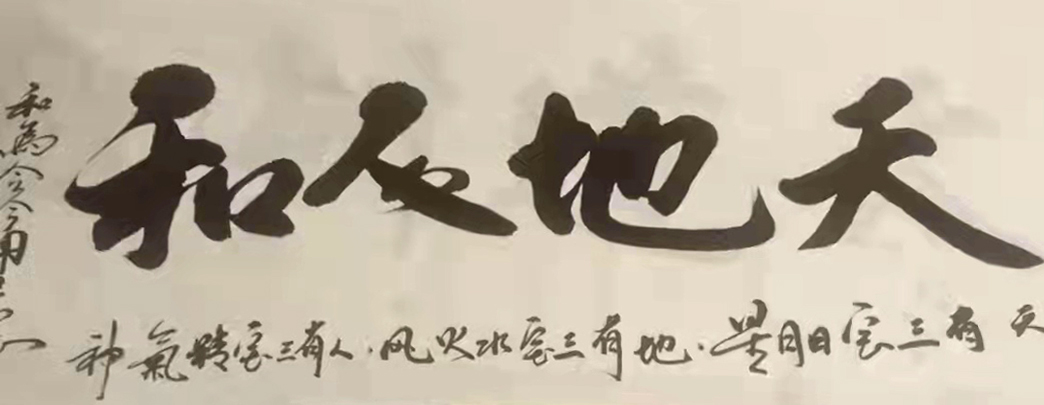 天地人和
天有三宝日月星.地有三宝水火风.人有三宝精氣神
和為